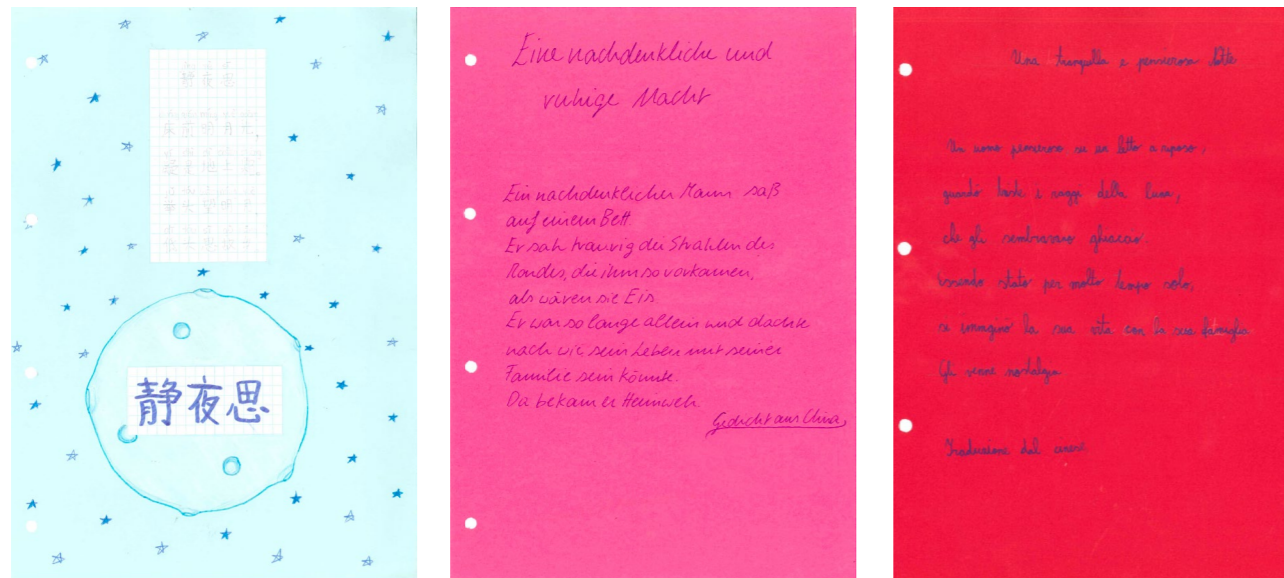 静夜思
静夜思
Eine nachdenkliche und
ruhige Nacht
Ein nachdenklicher Mann saß
auf einem Bett.
Er sah traurig die Strahlen des
Mondes, die ihm so vorkamen,
als wären sie Eis
Er war so lange allein und dachte
nach wie sein Leben mit seiner
Familie sein könnte.
Da bekam er Heimweh
Gedicht aus China
Una tranquilla e pensierosa notte
Un uomo pensieroso su un letto a riposo,
quando i raggi della luna,
che gli sembravano ghiaccio.
essendo stato per molto tempo solo,
si immaginò la sua vita con la sua famiglia
Gli venne nostalgia
Traduzione dal cinese